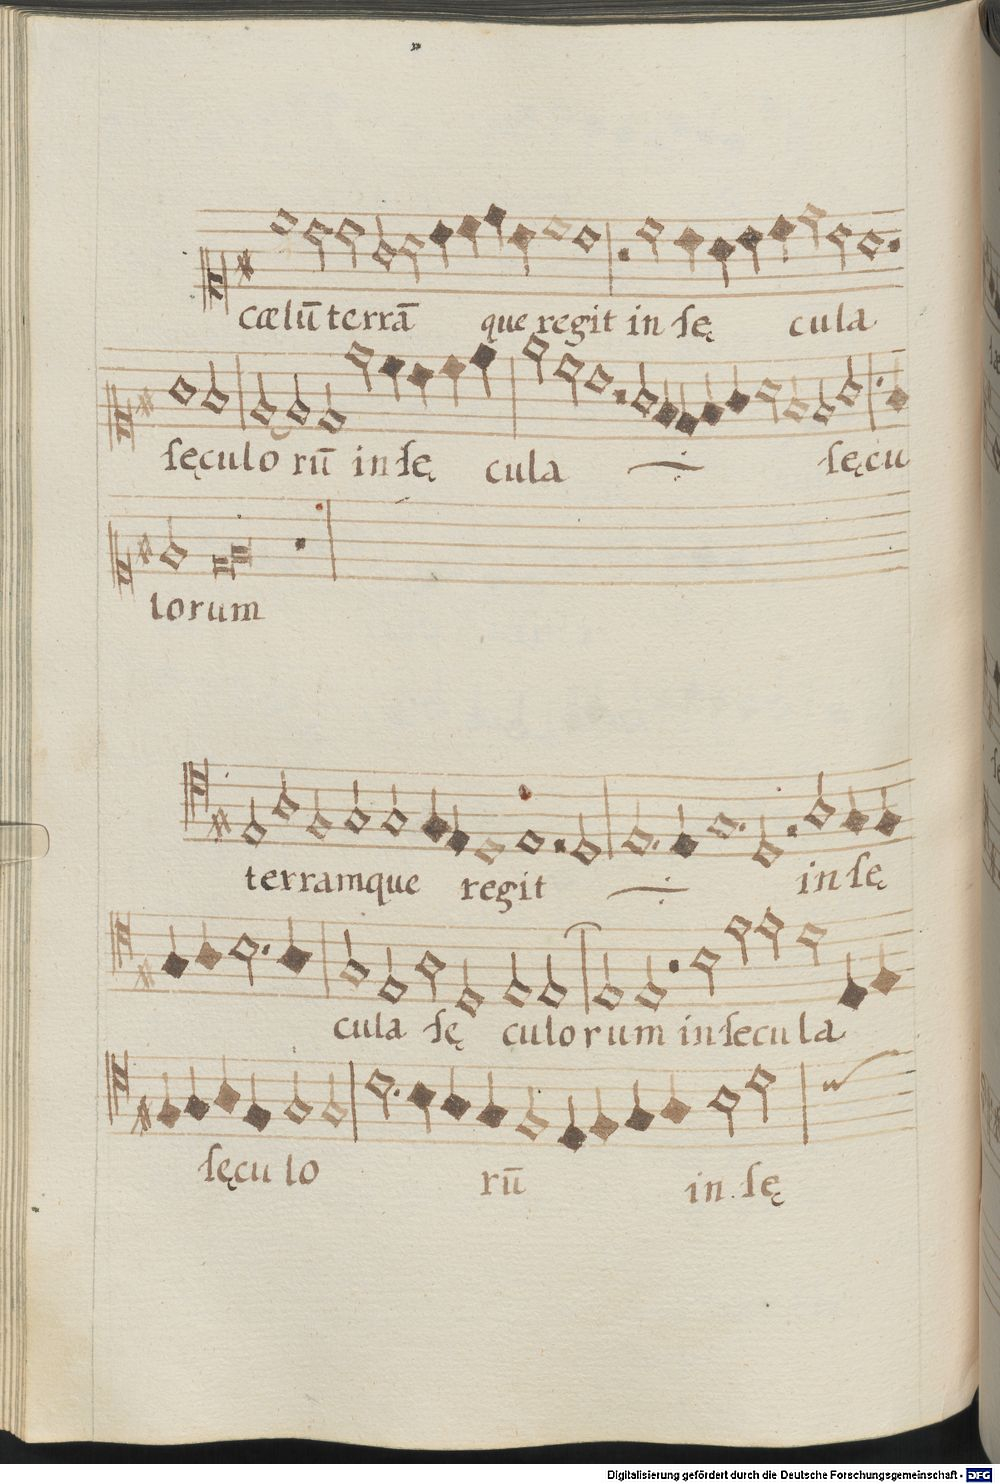 cælū terrā que regit in sę cula
sęculo rū in sę cula sęcu
lorum
terramque regit in sę
cula sę culorum in secula
sęculo rū in sę
Digitalisierung gefördert durch die Deutsche Forschungsgemeinschaft - DFG